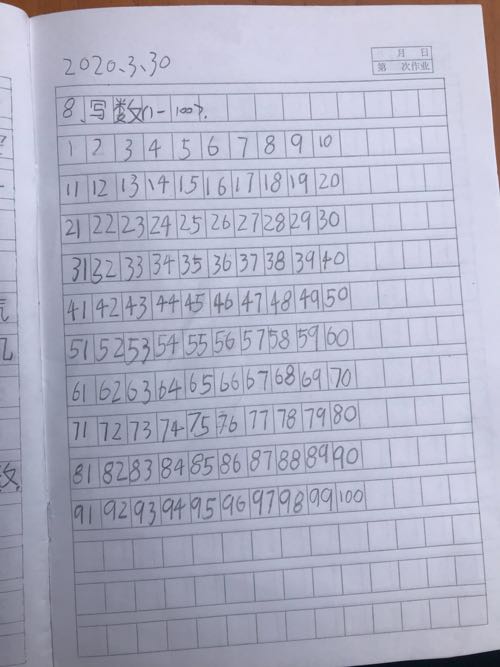 2020.3.30
月 日
第 次作业
8、写数(1-100).
1 2 3 4 5 6 7 8 9 10
11 12 13 14 15 16 17 18 19 20
21 22 23 24 25 26 27 28 29 30
31 32 33 34 35 36 37 38 39 40
41 42 43 44 45 46 47 48 49 50
51 52 53 54 55 56 57 58 59 60
61 62 63 64 65 66 67 68 69 70
71 72 73 74 75 76 77 78 79 80
81 82 83 84 85 86 87 88 89 90
91 92 93 94 95 96 97 98 99 100